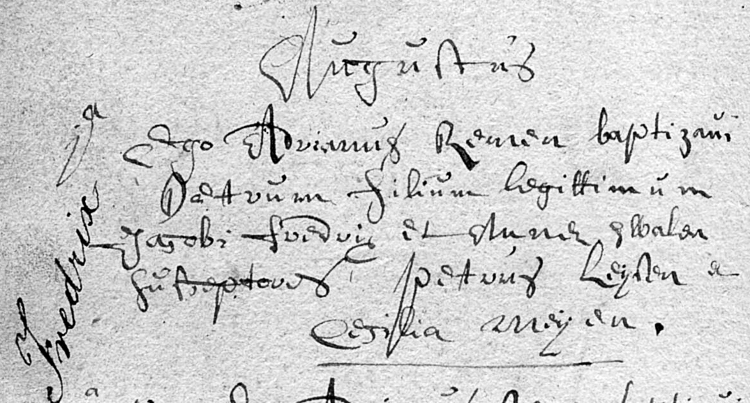 Augustus
1a Ego Adrianus Remen baptizavi
Petrum filium legittimum
Jacobi Fredrix et Annez Zwalen
susceptores Petrus Leysen e
Cecilia Meyen.
Fredrix